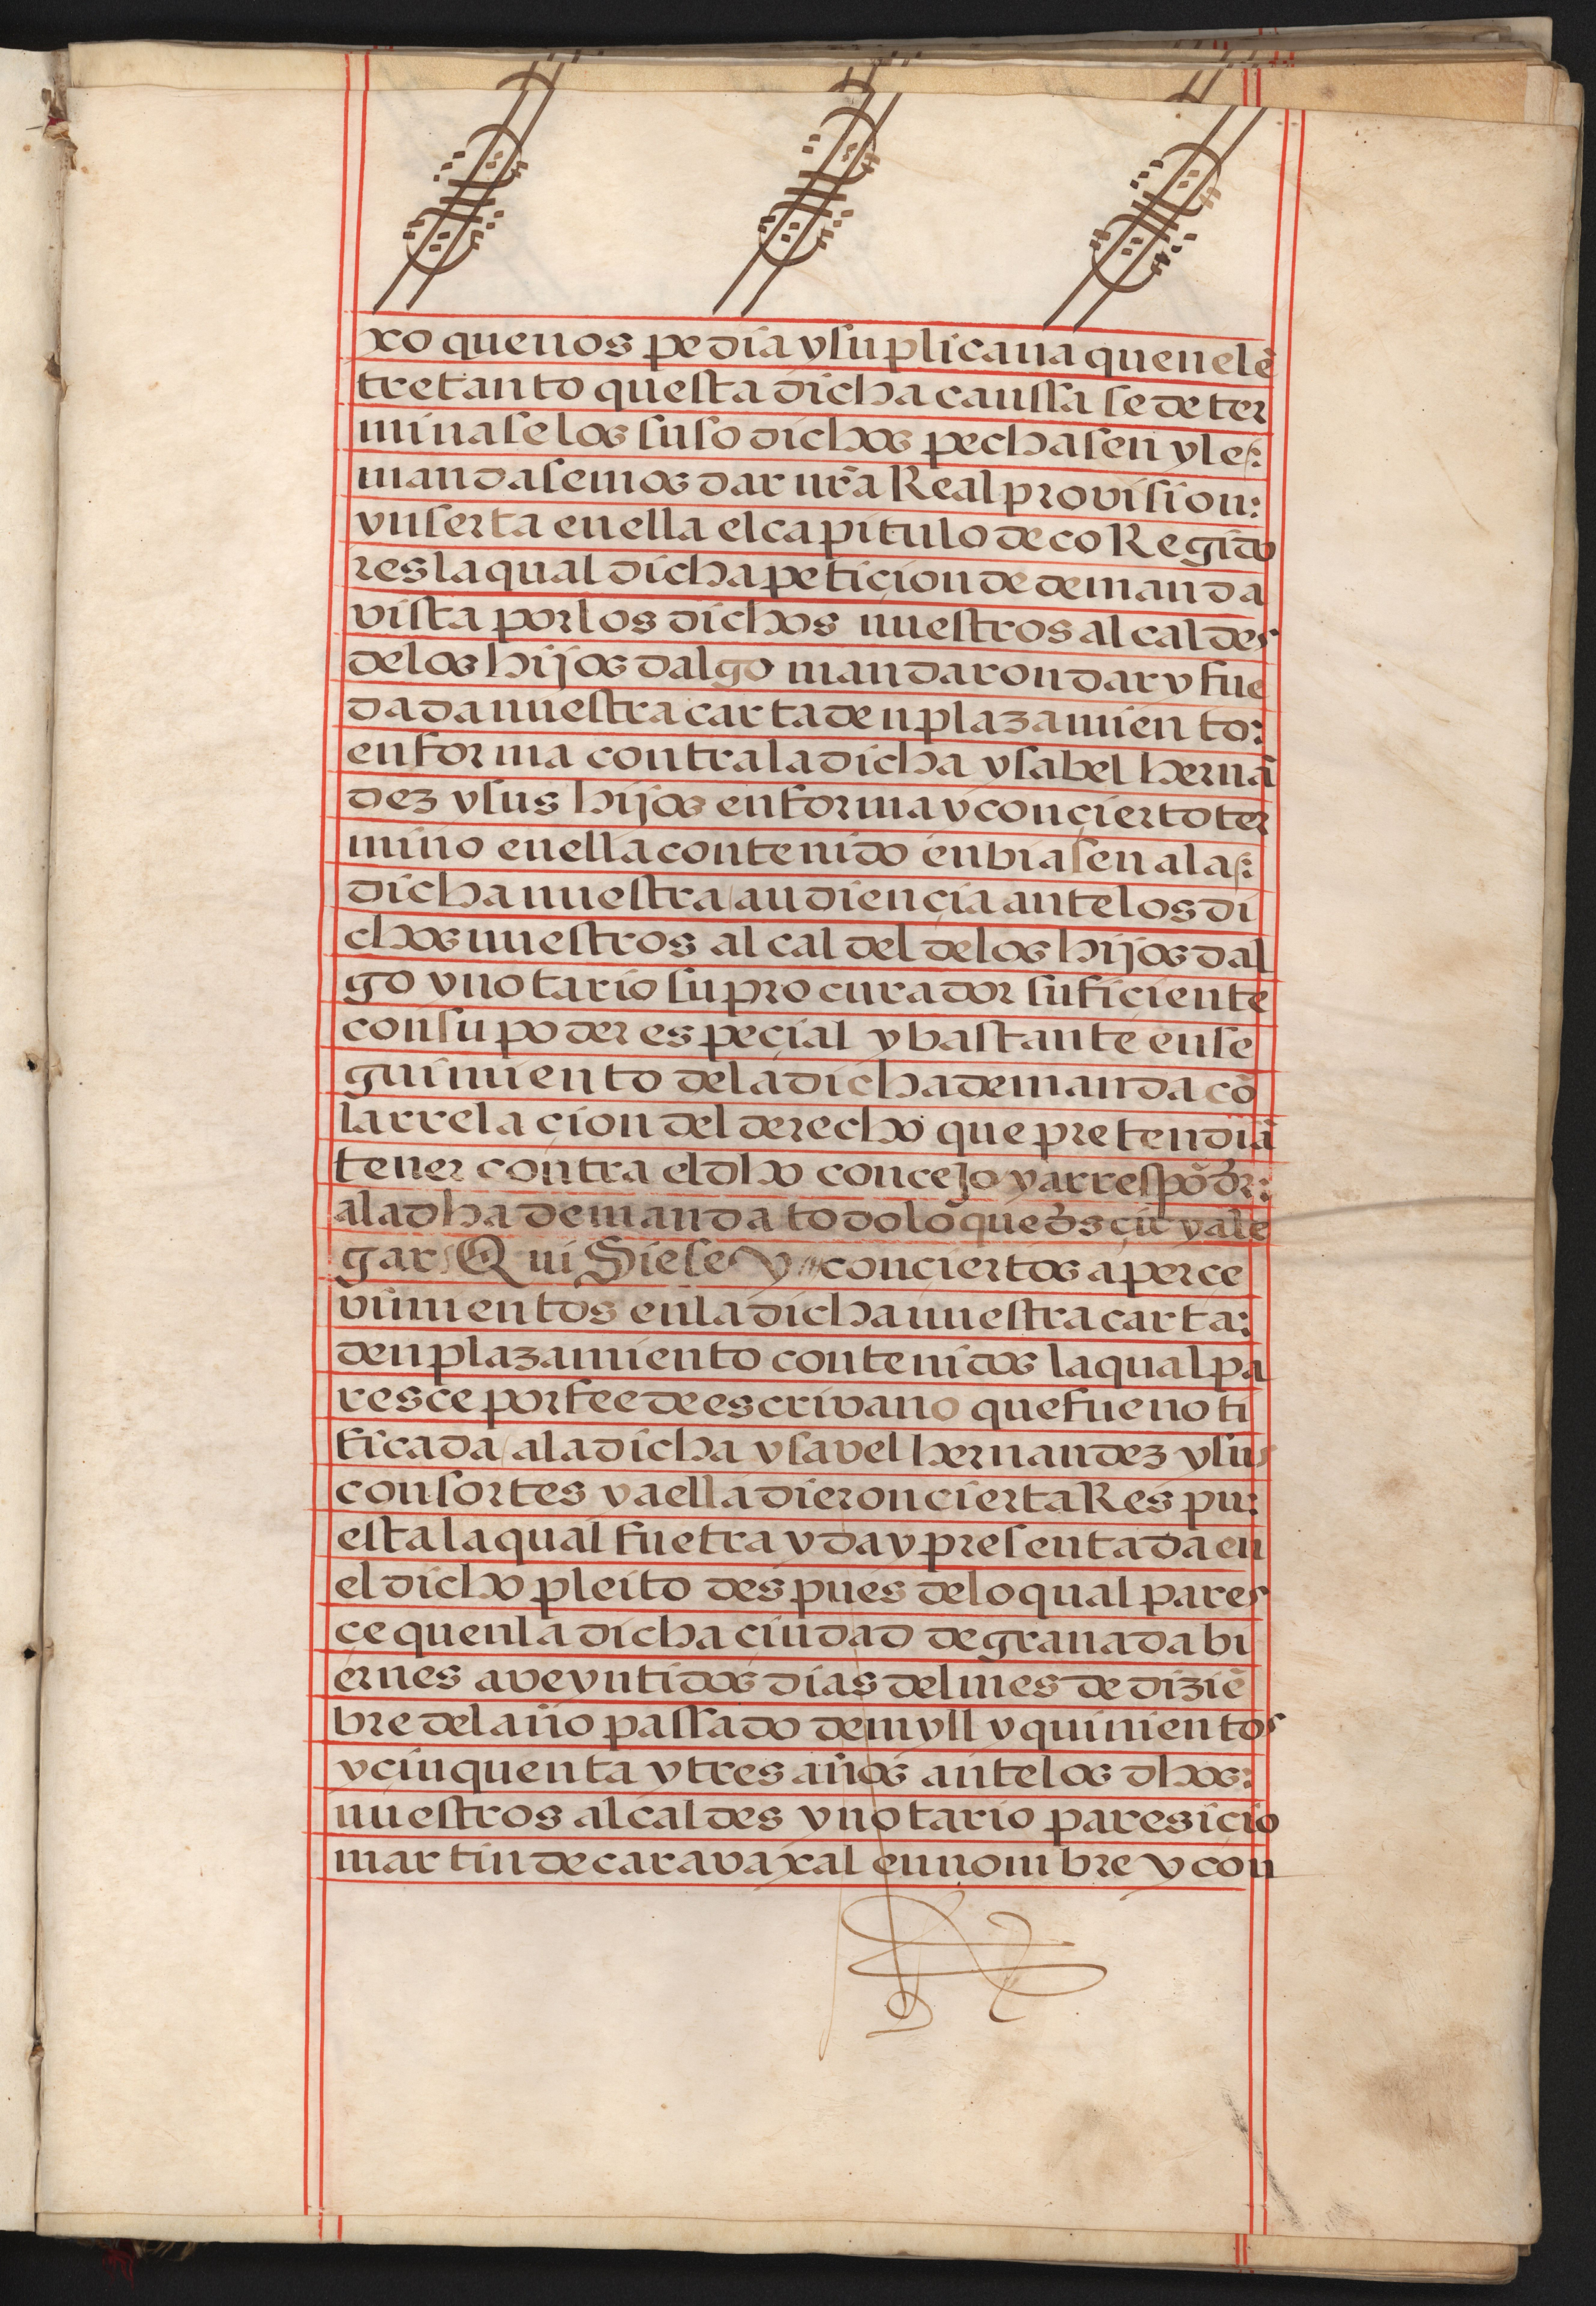 xo que nos pedia y suplicaua quen el ẽ
tretanto questa dicha caussa se deter
minase los suso dichos pechasen y les:
mandasemos dar nr̃a Real provision:
ynserta en ella el capitulo de coRegido
res la qual dicha peticion de demanda
vista por los dichos nuestros alcaldes
de los hijos dalgo mandaron dar y fue
dada nuestra carta denplazamiento:
en forma contra la dicha ysabel hernã
dez y sus hijos en forma y con çierto ter
mino en ella contenido enbiasen a las:
dicha nuestra audiençia ante los di
chos nuestros alcaldel de los hijos dal
go y notario su procurador suficiente
con su poder espeçial y bastante en se
guimiento de la dicha demanda cõ
la rrelacion del derecho que pretendiã
tener contra el dho concejo y a rrespõdr̃:
a la dha demanda todo lo que dsçir y ale
gar QuiSiese y con ciertos aperce
vimientos en la dicha nuestra carta:
denplazamiento contenidos la qual pa
resce por fee de escrivano que fue noti
ficada a la dicha ysavel hernandez y sus
consortes y a ella dieron cierta Respu:
esta la qual fue trayda y presentada en
el dicho pleito despues de lo qual pares
ce quen la dicha ciudad de granada bi
ernes a veyntidos dias del mes de diziẽ
bre del año passado de myll y quinientos
y cinquenta y tres años ante los dhos:
nuestros alcaldes y notario paresicio
martin de caravaxal en nombre y con